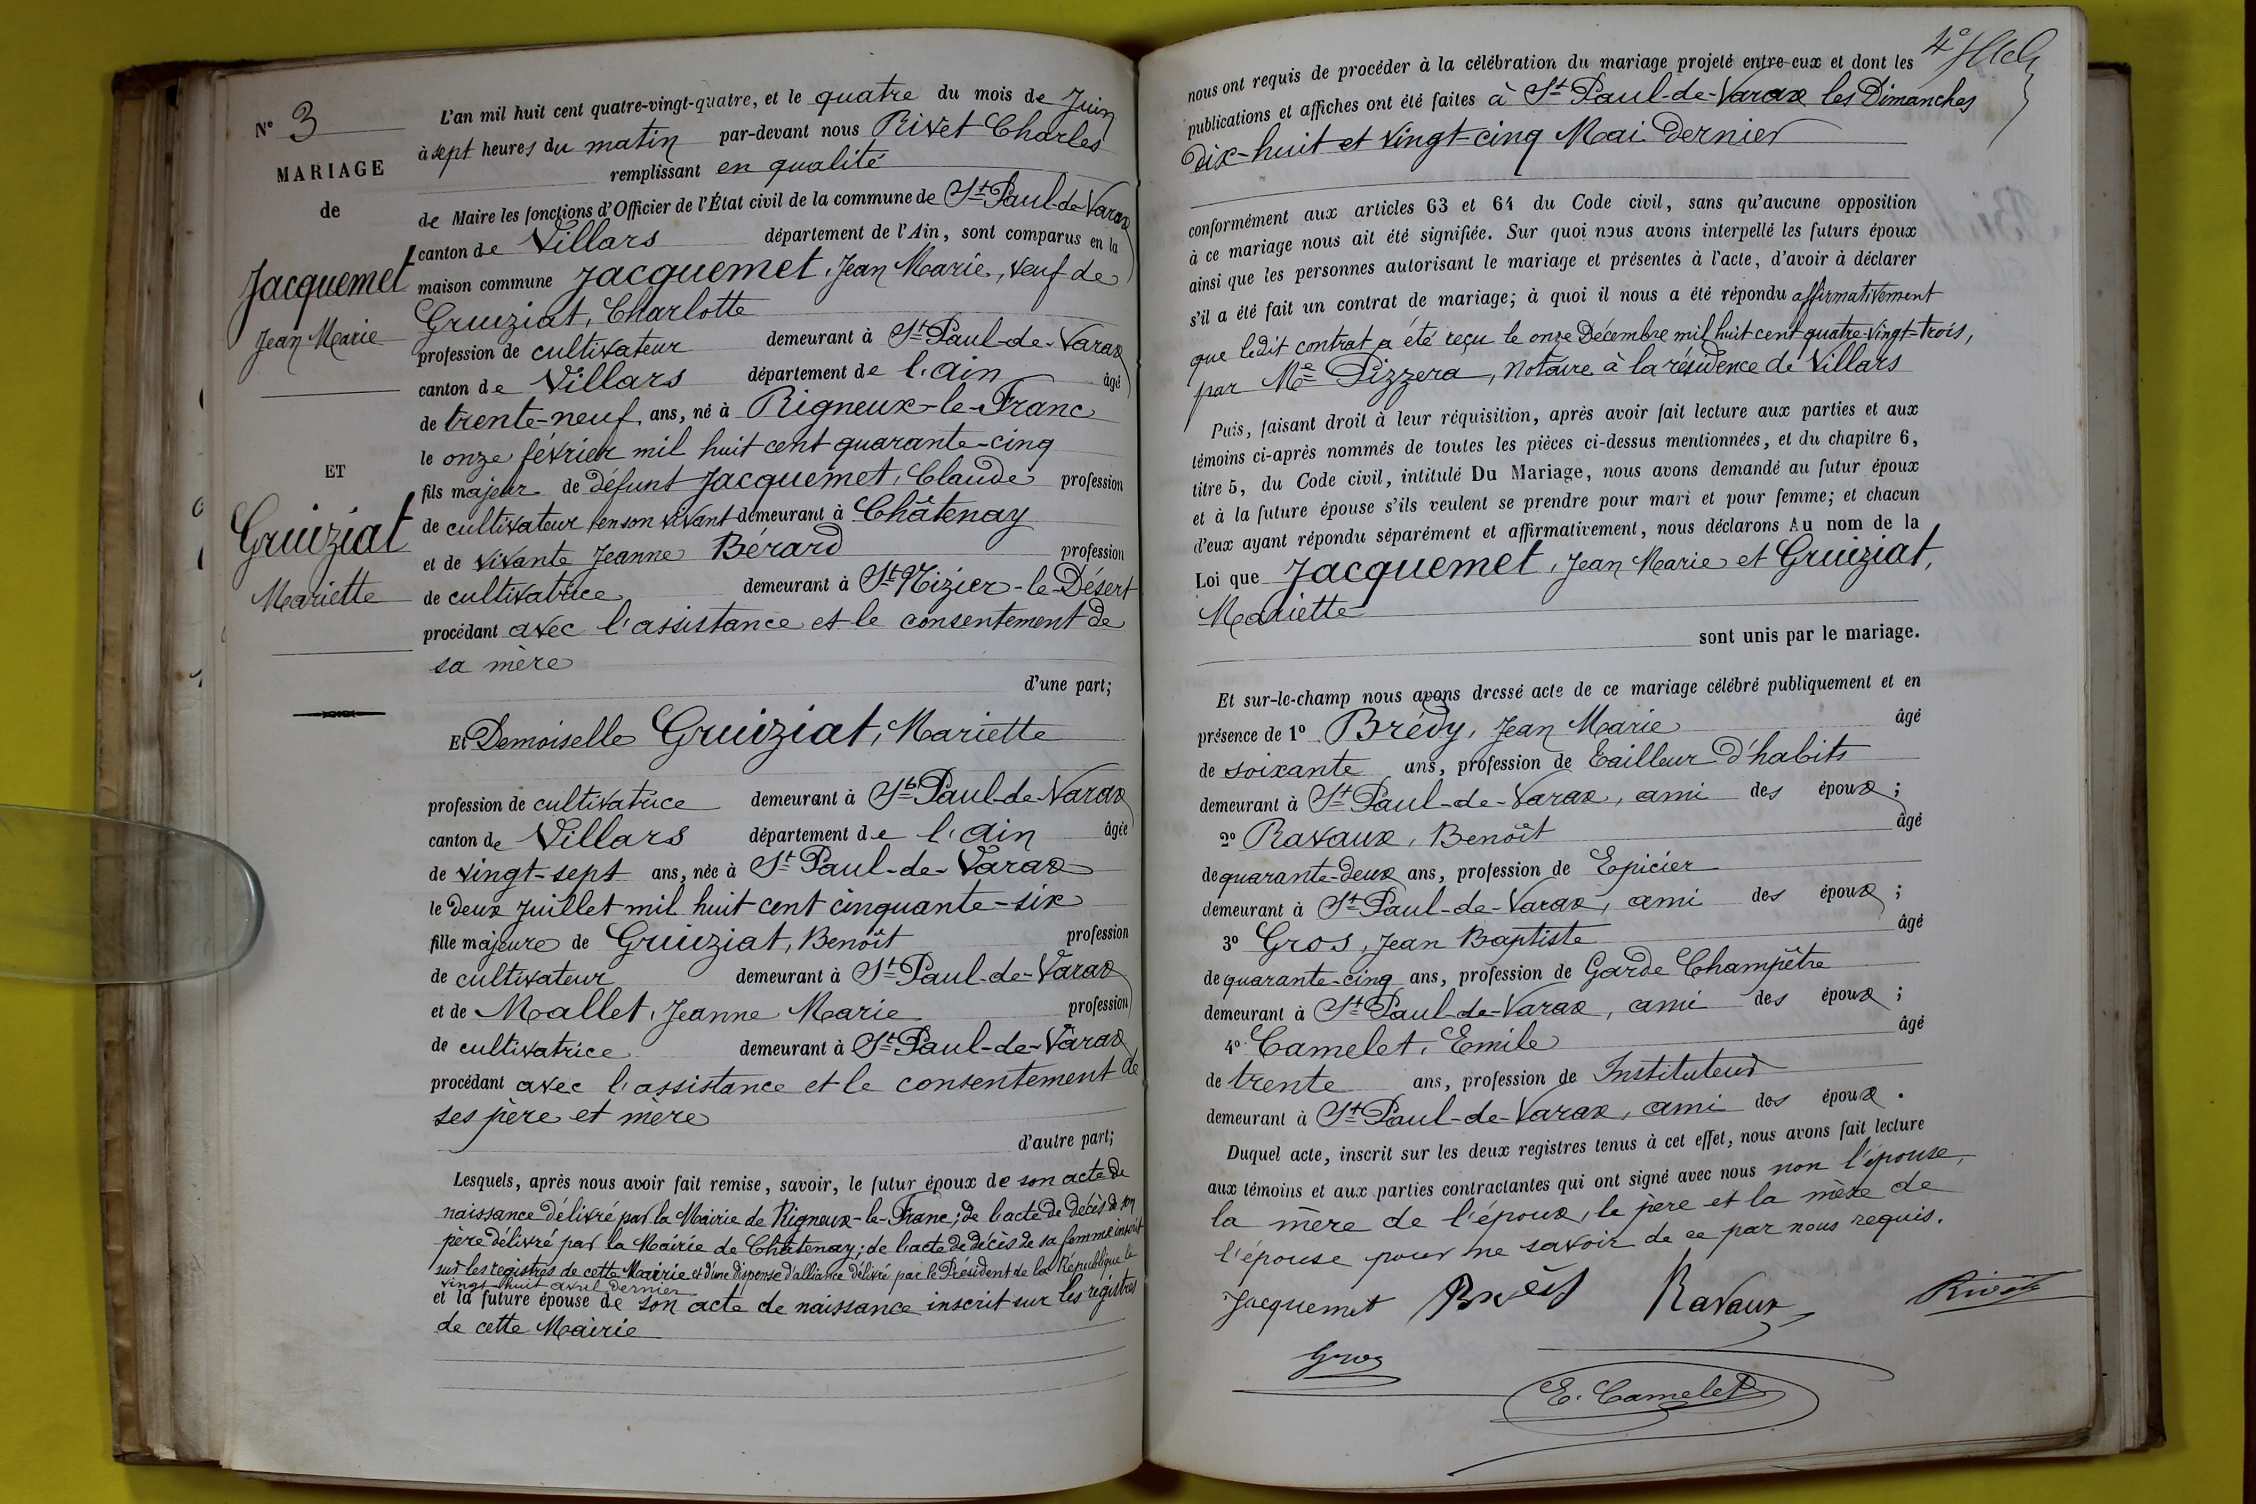 N° 3
MARIAGE
de
Jacquemet
Jean Marie
ET
Gruiziat
Mariette
L'an mil huit cent quatre-vingt-quatre, et le quatre du mois de Juin
à sept heures du matin par-devant nous Rivet Charles
remplissant en qualité
de Maire les fonctions d'Officier de l'État civil de la commune de St Paul-de-Varax
canton de Villars département de l'Ain, sont comparus en la
maison commune Jacquemet, Jean Marie, veuf de
Gruiziat, Charlotte
profession de cultivateur demeurant à St Paul-de-Varax
canton de Villars département de l'Ain âgé
de trente-neuf ans, né à Rigneux-le-Franc
le onze février mil huit cent quarante-cinq
fils majeur de défunt Jacquemet, Claude profession
de cultivateur en son vivant demeurant à Châtenay
et de vivante Jeanne Bérard profession
de cultivatrice demeurant à St Nizier-le-Désert
procédant avec l'assistance et le consentement de
sa mère
d'une part;
Et Demoiselle Gruiziat, Mariette
profession de cultivatrice demeurant à St Paul-de-Varax
canton de Villars département de l'Ain âgée
de vingt-sept ans, née à St Paul-de-Varax
le deux Juillet mil huit cent cinquante-six
fille majeure de Gruiziat, Benoît profession
de cultivateur demeurant à St Paul-de-Varax
et de Mallet, Jeanne Marie profession
de cultivatrice demeurant à St Paul-de-Varax
procédant avec l'assistance et le consentement de
ses père et mère
d'autre part;
Lesquels, après nous avoir fait remise, savoir, le futur époux de son acte de
naissance délivré par la Mairie de Rigneux-le-Franc; de l'acte de décès de son
père délivré par la Mairie de Châtenay; de l'acte de décès de sa femme inscrit
sur les registres de cette Mairie et d'une dispense d'alliance délivré par le Président de la République le
vingt-huit avril dernier
et la future épouse de son acte de naissance inscrit sur les registres
de cette Mairie
nous ont requis de procéder à la célébration du mariage projeté entre eux et dont les
publications et affiches ont été faites à St Paul-de-Varax les Dimanches
dix-huit et vingt-cinq Mai dernier
conformément aux articles 63 et 64 du Code civil, sans qu'aucune opposition
à ce mariage nous ait été signifiée. Sur quoi nous avons interpellé les futurs époux
ainsi que les personnes autorisant le mariage et présentes à l'acte, d'avoir à déclarer
s'il a été fait un contrat de mariage; à quoi il nous a été répondu affirmativement
que ledit contrat a été reçu le onze Décembre mil huit cent quatre-vingt-trois,
par Me Pizzera, Notaire à la résidence de Villars
Puis, faisant droit à leur réquisition, après avoir fait lecture aux parties et aux
témoins ci-après nommés de toutes les pièces ci-dessus mentionnées, et du chapitre 6,
titre 5, du Code civil, intitulé Du Mariage, nous avons demandé au futur époux
et à la future épouse s'ils veulent se prendre pour mari et pour femme; et chacun
d'eux ayant répondu séparément et affirmativement, nous déclarons Au nom de la
Loi que Jacquemet, Jean Marie et Gruiziat,
Mariette
sont unis par le mariage.
Et sur-le-champ nous avons dressé acte de ce mariage célébré publiquement et en
présence de 1° Brédy, Jean Marie âgé
de soixante ans, profession de Tailleur d'habits
demeurant à St Paul-de-Varax, ami des époux;
2° Ravaux, Benoît âgé
de quarante-deux ans, profession de Epicier
demeurant à St Paul-de-Varax, ami des époux;
3° Gros, Jean Baptiste âgé
de quarante-cinq ans, profession de Garde Champêtre
demeurant à St Paul-de-Varax, ami des époux;
4° Camelet, Emile âgé
de trente ans, profession de Instituteur
demeurant à St Paul-de-Varax, ami des époux.
Duquel acte, inscrit sur les deux registres tenus à cet effet, nous avons fait lecture
aux témoins et aux parties contractantes qui ont signé avec nous non l'épouse,
la mère de l'époux, le père et la mère de
l'épouse pour ne savoir de ce par nous requis.
Jacquemet Ravaux Rivet
Gros
E. Camelet